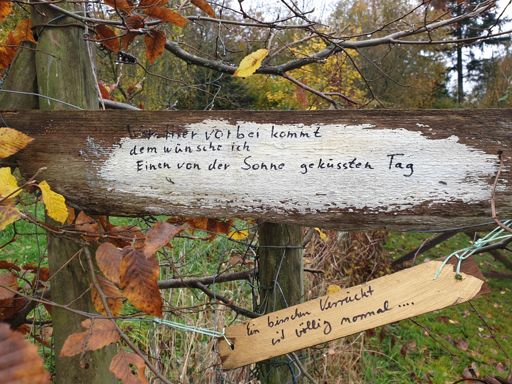 Wer hier vorbei kommt
dem wünsche ich
Einen von der Sonne geküssten Tag
Ein bisschen Verrückt
ist völlig normal ....